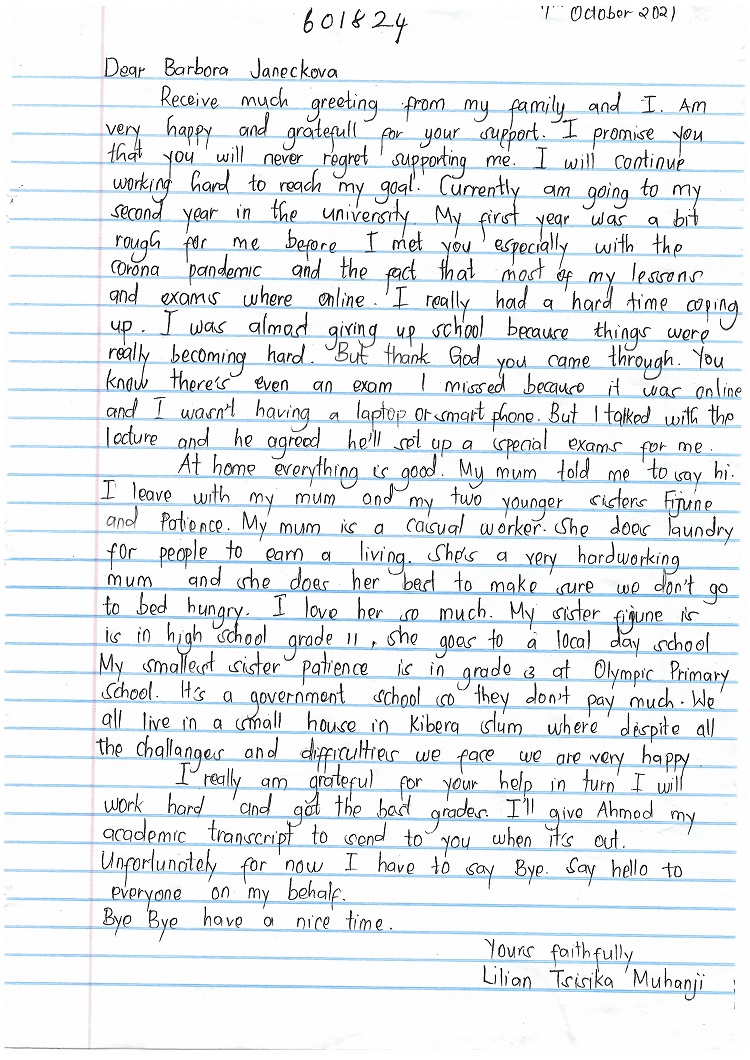 601824
7th October 2021
Dear Barbora Janeckova
Receive much greeting from my family and I. Am
very happy and gratefull for your support. I promise you
that you will never regret supporting me. I will continue
working hard to reach my goal. Currently am going to my
second year in the university. My first year was a bit
rough for me before I met you especially with the
corona pandemic and the fact that most of my lessons
and exams where online. I really had a hard time coping
up. I was almost giving up school because things were
really becoming hard. But thank God you came through. You
know there's even an exam I missed because it was online
and I wasn't having a laptop or smart phone. But I talked with the
lecture and he agreed he'll set up a special exams for me.
At home everything is good. My mum told me to say hi.
I leave with my mum and my two younger sisters Fijune
and Patience. My mum is a casual worker. She does laundry
for people to earn a living. She's a very hardworking
mum and she does her best to make sure we don't go
to bed hungry. I love her so much. My sister fijune is
is in high school grade 11, she goes to a local day school
My smallest sister patience is in grade 3 at Olympic Primary
school. It's a government school so they don't pay much. We
all live in a small house in Kibera slum where despite all
the challanges and difficulties we face we are very happy.
I really am grateful for your help in turn I will
work hard and get the best grades. I'll give Ahmed my
academic transcript to send to you when it's out.
Unfortunately for now I have to say Bye. Say hello to
everyone on my behalf.
Bye Bye have a nice time.
Yours faithfully
Lilian Tsisika Muhanji